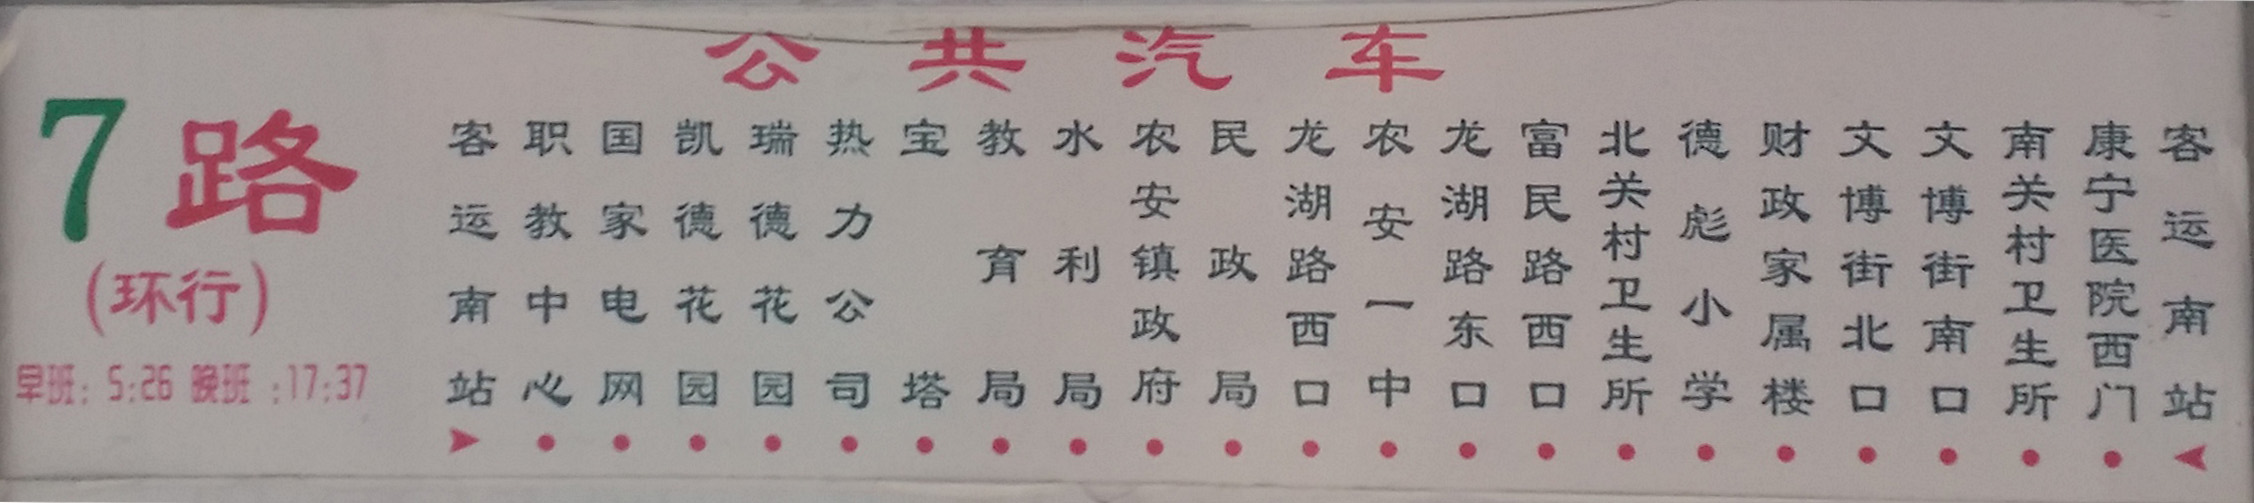 公共汽车
7路
(环行)
早班: 5:26 晚班:17:37
客运南站
职教中心
国家电网
凯德花园
瑞德花园
热力公司
宝塔
教育局
水利局
农安镇政府
民政局
龙湖路西口
农安一中
龙湖路东口
富民路西口
北关村卫生所
德彪小学
财政家属楼
文博街北口
文博街南口
南关村卫生所
康宁医院西门
客运南站